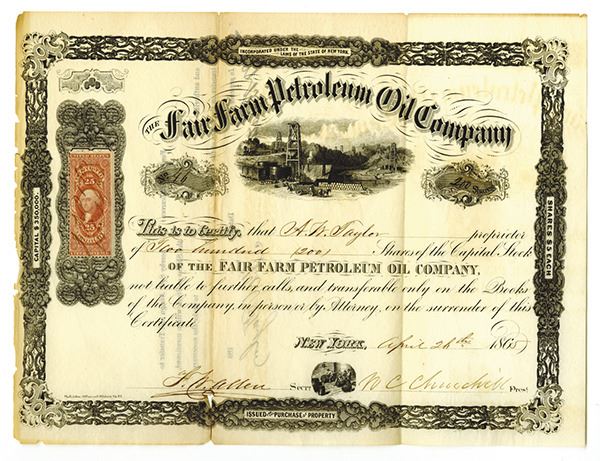 INCORPORATED UNDER THE
LAWS OF THE STATE OF NEW YORK.
THE Fair Farm Petroleum Oil Company
25
25 25
CAPITAL $ 350,000.
SHARES $5 EACH
This is to Certify, that A. W. Taylor proprietor
of Two hundred (200) Shares of the Capital Stock
OF THE FAIR FARM PETROLEUM OIL COMPANY,
not liable to further calls, and transferable only on the Books
of the Company, in person or by Attorney, on the surrender of this
Certificate.
NEW YORK, April 26th 1865
Secy W C Churchill Prest
ISSUED FOR PURCHASE OF PROPERTY